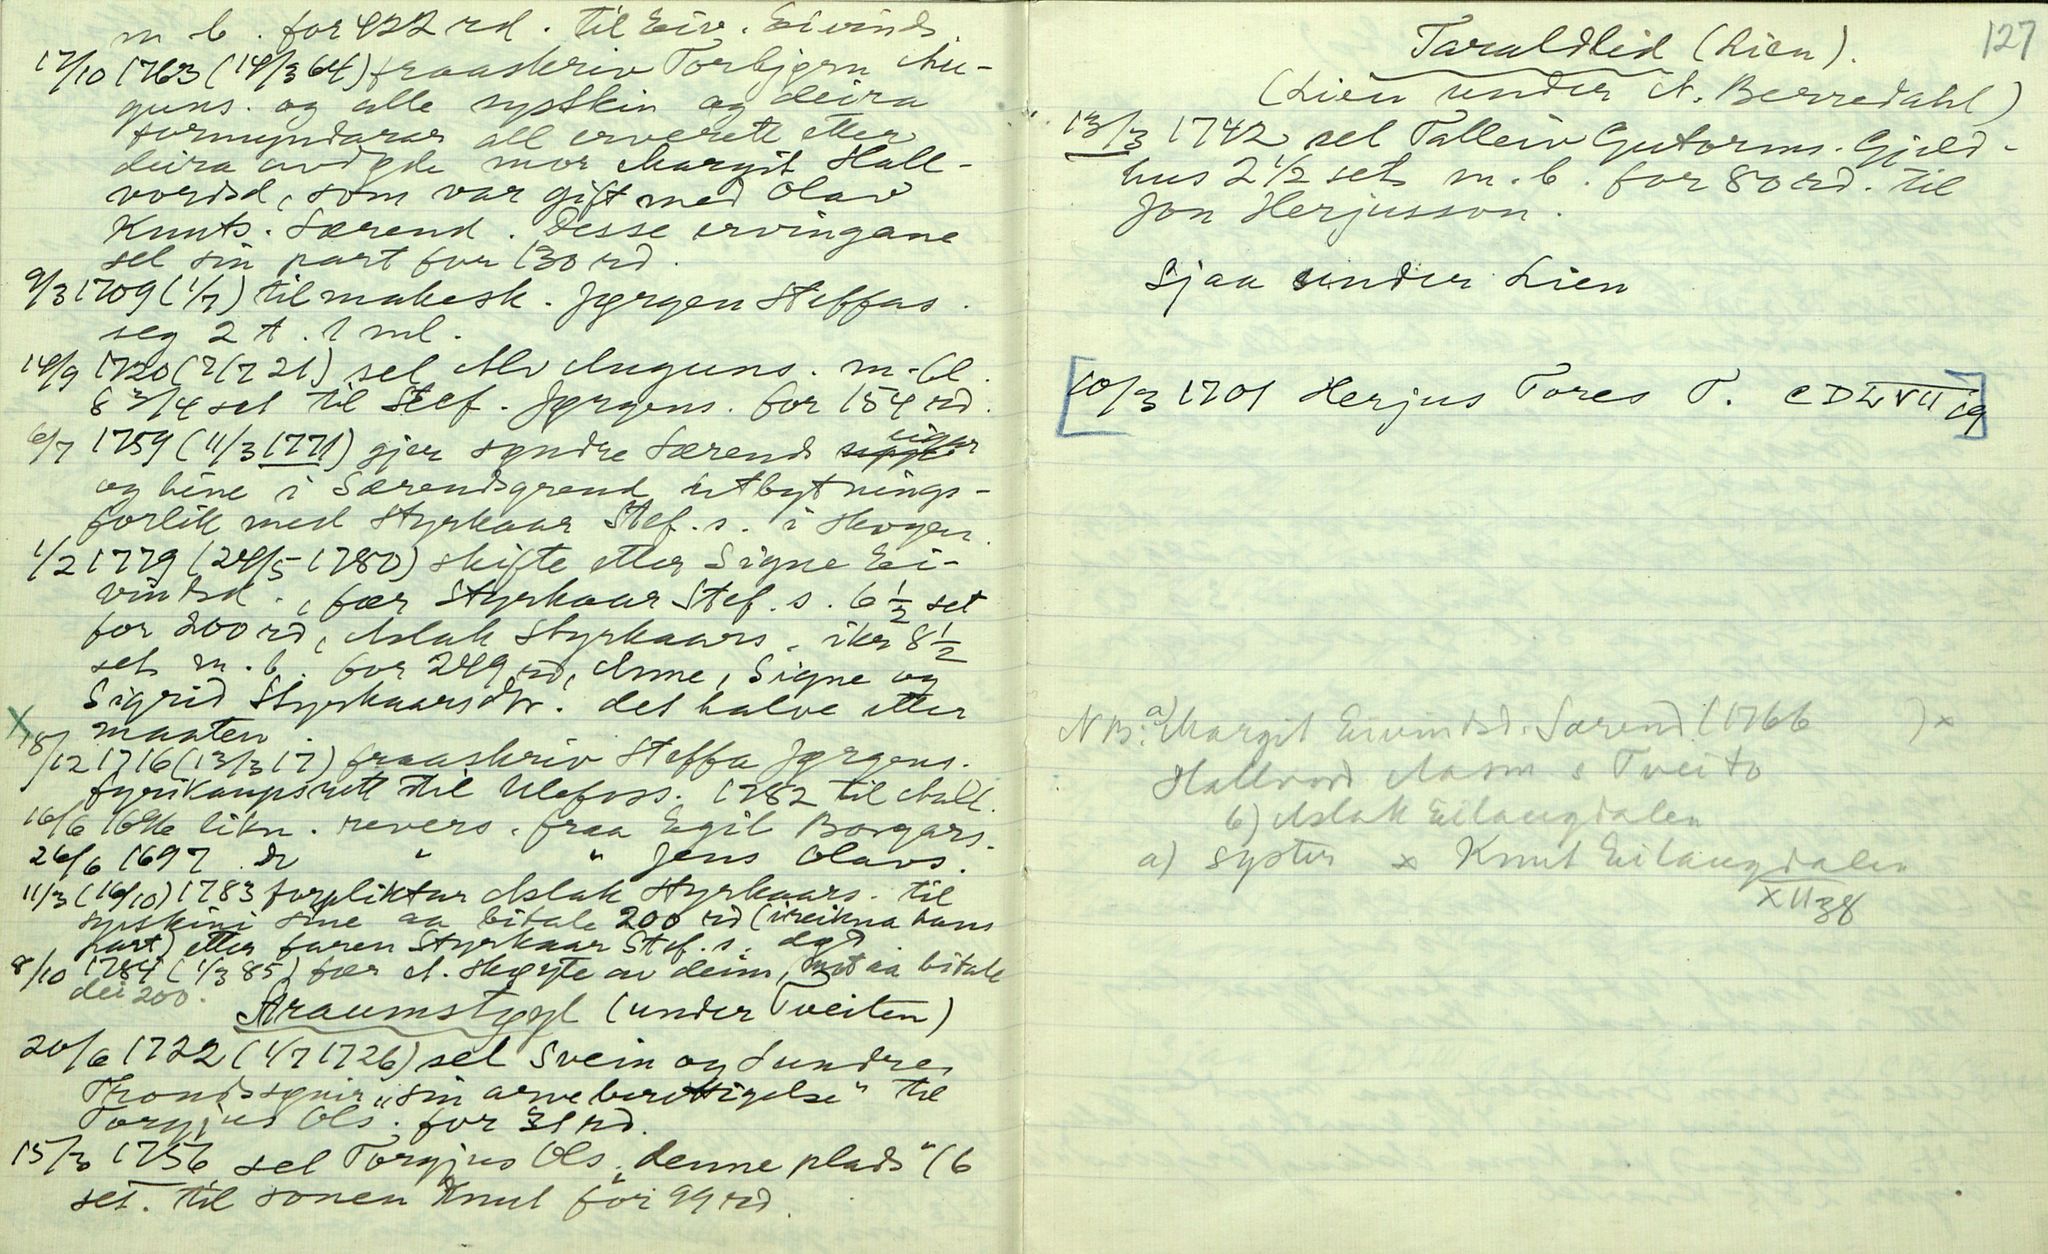 m b. for 422 rd. til Eiv. Eivinds.
17/10 1763 (14/3 64) fraaskriv Torbjørn Au-
guns. og alle sysskin og deira
formyndarar all erverett etter
deira avdøde mor Margit Hall-
vordsd, som var gift med Olav
Knuts. Særend. Desse ervingane
sel sin part for 130 rd.
9/3 1709 (1/7) til makesk. Jørgen Steffas.
seg 2 t. 1 ml.
14/9 1720 (2/7 21) sel Alv Auguns. m. bl.
8 3/4 set til Stef. Jørgens. for 154 rd.
6/7 1759 (11/3 1771) gjer søndre Særends eigar
og hine i Særendsgrend utbytnings-
forlik med Styrkaar Stef. s. i Haugen.
1/2 1779 (24/5 1780) skifte etter Signe Ei-
vindsd., fær Styrkaar Stef. s. 6 1/2 set
for 200 rd, Aslak Styrkaars. 8 1/2
set m. b. for 249 rd, Anne, Signe og
Sigrid Styrkaarsdtr. det halve etter
maaten.
X 18/12 1716 (13/3 17) fraaskriv Steffa Jørgens.
fyrikaupsrett til Ulefoss. 1782 til
16/6 1696 likn. revers. fraa Egil Borgars.
26/6 1697 do " " Jens Olavs.
11/3 (16/10) 1783 forpliktar Aslak Styrkaars. til
syskini sine aa bitale 200 rd (ireikna hans
part) etter faren Styrkaar Stef. s. død
8/10 1784 (1/3 85) fær A. skøyte av deim, mot aa bitale
dei 200.
Straumstøyl (under Tveiten)
20/6 1722 (1/7 1726) sel Svein og Sundre
Trondssønir "sin arveberettigelse" til
Torgjus Ols. for 31 rd.
15/3 1756 sel Torgjus Ols. "denne plads" (6
set. til sonen Knut for 99 rd.
127
Taraldlid (Lien).
(Lien under N. Berredahl)
13/3 1742 sel Talleiv Gutorms. Gjeld-
hus 2 1/2 set m. b. for 80 rd. til
Jon Herjusson.
Sjaa under Lien
[10/3 1701 Herjus Tores T. CD LVII 19]
NB: a) Margit Eivindsd. Særend (1766 ) x
Hallvord Aasm. s Tveito
b) Aslak Eilaugdalen
a) syster x Knut Eilaugdalen
XII 38